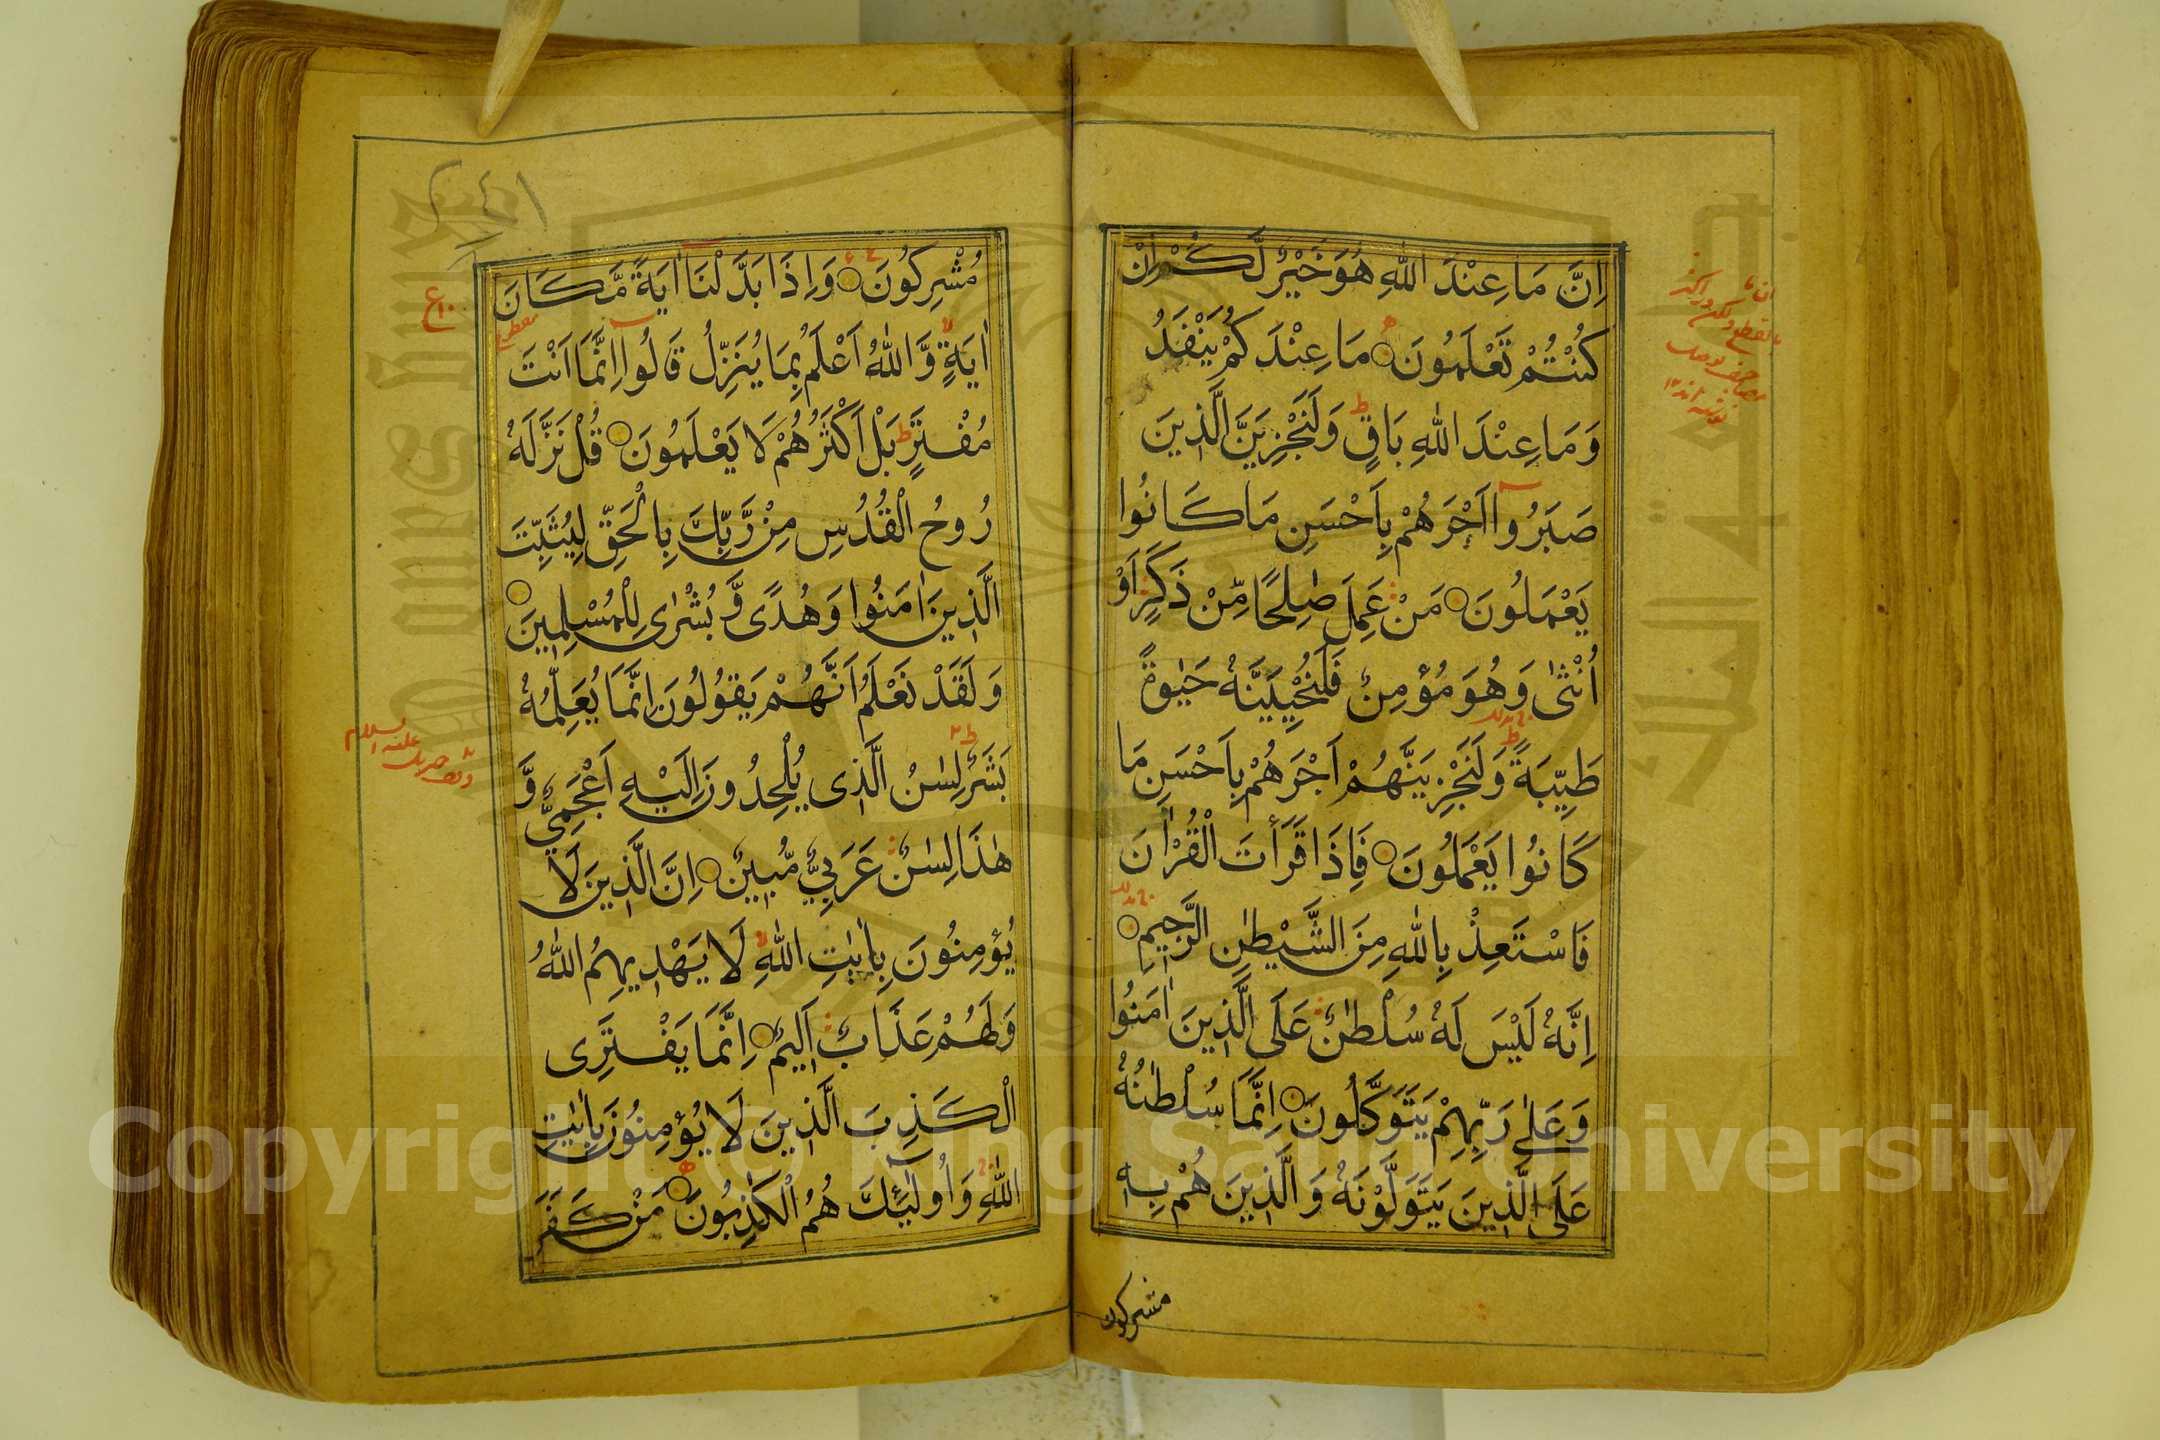 اِنَّ مَا عِنْدَ اللّٰهِ هُوَ خَيْرٌ لَّكُمْ اِنْ
كُنْتُمْ تَعْلَمُونَ مَا عِنْدَكُمْ يَنْفَدُ
وَمَا عِنْدَ اللّٰهِ بَاقٍ ط وَلَنَجْزِيَنَّ الَّذِينَ
صَبَرُوا اَجْرَهُمْ بِاَحْسَنِ مَا كَانُوا
يَعْمَلُونَ مَنْ عَمِلَ صٰلِحًا مِّنْ ذَكَرٍ اَوْ
اُنْثٰى وَهُوَ مُؤْمِنٌ فَلَنُحْيِيَنَّهُ حَيٰوةً
طَيِّبَةً ط وَلَنَجْزِيَنَّهُمْ اَجْرَهُمْ بِاَحْسَنِ مَا
كَانُوا يَعْمَلُونَ فَاِذَا قَرَأْتَ الْقُرْاٰنَ
فَاسْتَعِذْ بِاللّٰهِ مِنَ الشَّيْطٰنِ الرَّجِيمِ
اِنَّهُ لَيْسَ لَهُ سُلْطٰنٌ عَلَى الَّذِينَ اٰمَنُوا
وَعَلٰى رَبِّهِمْ يَتَوَكَّلُونَ اِنَّمَا سُلْطٰنُهُ
عَلَى الَّذِينَ يَتَوَلَّوْنَهُ وَالَّذِينَ هُمْ بِهِ
مشركون
٢٤١
مُشْرِكُونَ وَاِذَا بَدَّلْنَا اٰيَةً مَّكَانَ
اٰيَةٍ وَّاللّٰهُ اَعْلَمُ بِمَا يُنَزِّلُ قَالُوا اِنَّمَا اَنْتَ
مُفْتَرٍ ط بَلْ اَكْثَرُهُمْ لَا يَعْلَمُونَ قُلْ نَزَّلَهُ
رُوحُ الْقُدُسِ مِنْ رَّبِّكَ بِالْحَقِّ لِيُثَبِّتَ
الَّذِينَ اٰمَنُوا وَهُدًى وَّبُشْرٰى لِلْمُسْلِمِينَ
وَلَقَدْ نَعْلَمُ اَنَّهُمْ يَقُولُونَ اِنَّمَا يُعَلِّمُهُ
بَشَرٌ ط لِسٰنُ الَّذِى يُلْحِدُونَ اِلَيْهِ اَعْجَمِيٌّ وَّ
هٰذَا لِسٰنٌ عَرَبِيٌّ مُّبِينٌ اِنَّ الَّذِينَ لَا
يُؤْمِنُونَ بِاٰيٰتِ اللّٰهِ لَا يَهْدِيهِمُ اللّٰهُ
وَلَهُمْ عَذَابٌ اَلِيمٌ اِنَّمَا يَفْتَرِى
الْكَذِبَ الَّذِينَ لَا يُؤْمِنُونَ بِاٰيٰتِ
اللّٰهِ وَاُولٰٓئِكَ هُمُ الْكٰذِبُونَ مَنْ كَفَرَ
Copyright © King Saud University